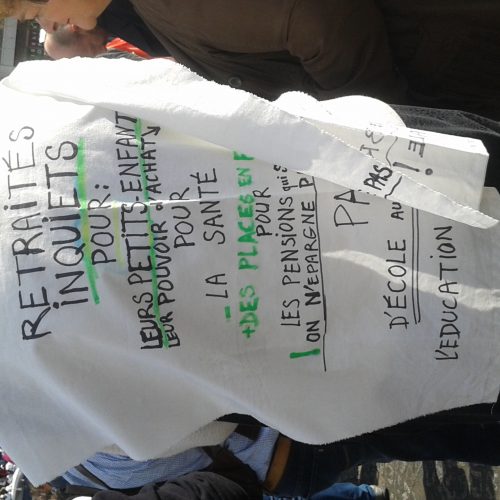 RETRAITÉS
INQUIETS
POUR:
LEURS PETITS-ENFANT
LEUR POUVOIR D'ACHATS
POUR
LA SANTÉ
+DES PLACES EN
POUR
LES PENSIONS qui
! ON N'EPARGNE
PAS
D'ÉCOLE AU
L'EDUCATION